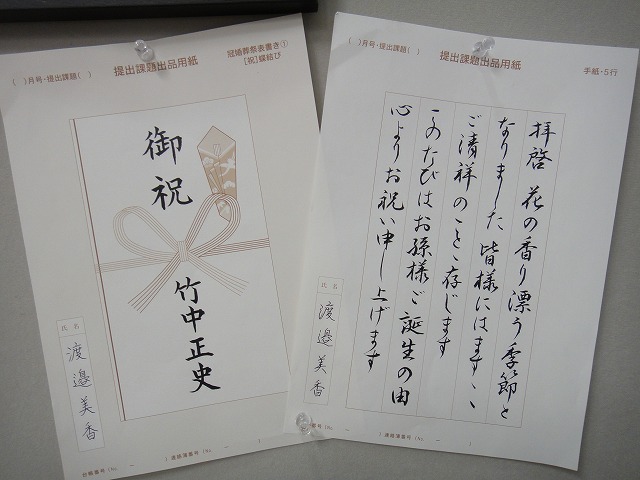 ( )月号・提出課題( )
提出課題出品用紙
冠婚葬祭表書き①
[祝]蝶結び
御祝
竹中正史
氏名
渡邉美香
( )月号・提出課題( )
提出課題出品用紙
手紙・5行
拝啓 花の香り漂う季節と
なりました 皆様にはますゝゝ
ご清祥のことゝ存じます
このたびはお孫様ご誕生の由
心よりお祝い申し上げます
氏名
渡邉美香